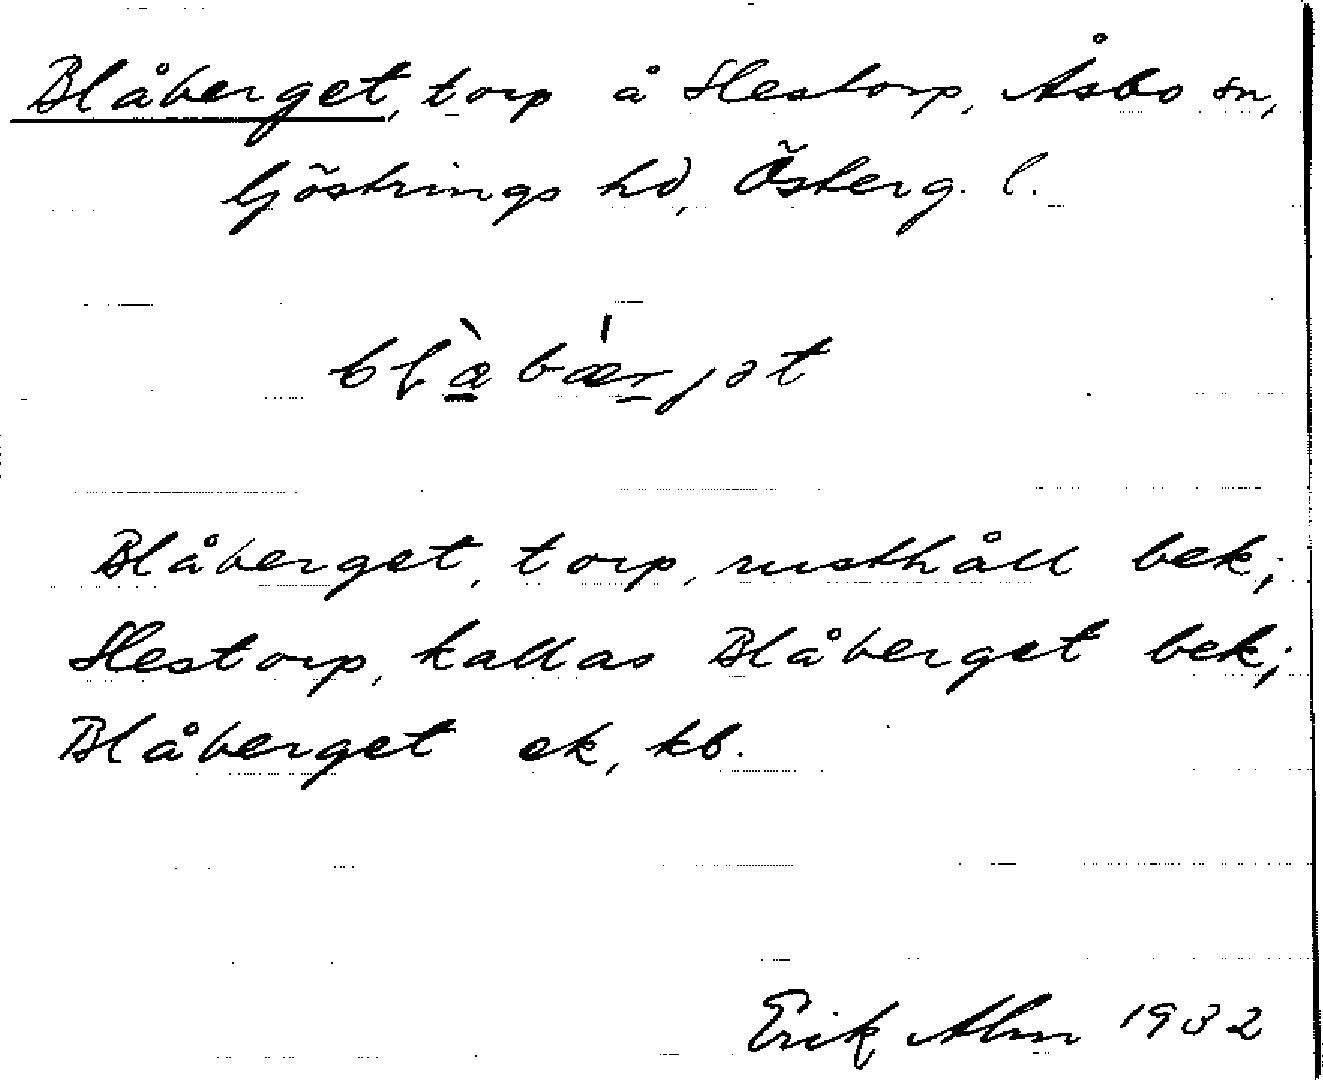 Blåberget, torp å Slestorp, Åsbo sn,
Göstrings hd, Österg. l.
blàbǽrjət
Blåberget, torp, rusthåll bek;
Slestorp, kallas Blåberget bek;
Blåberget ek, kb.
Erik Alm 1932